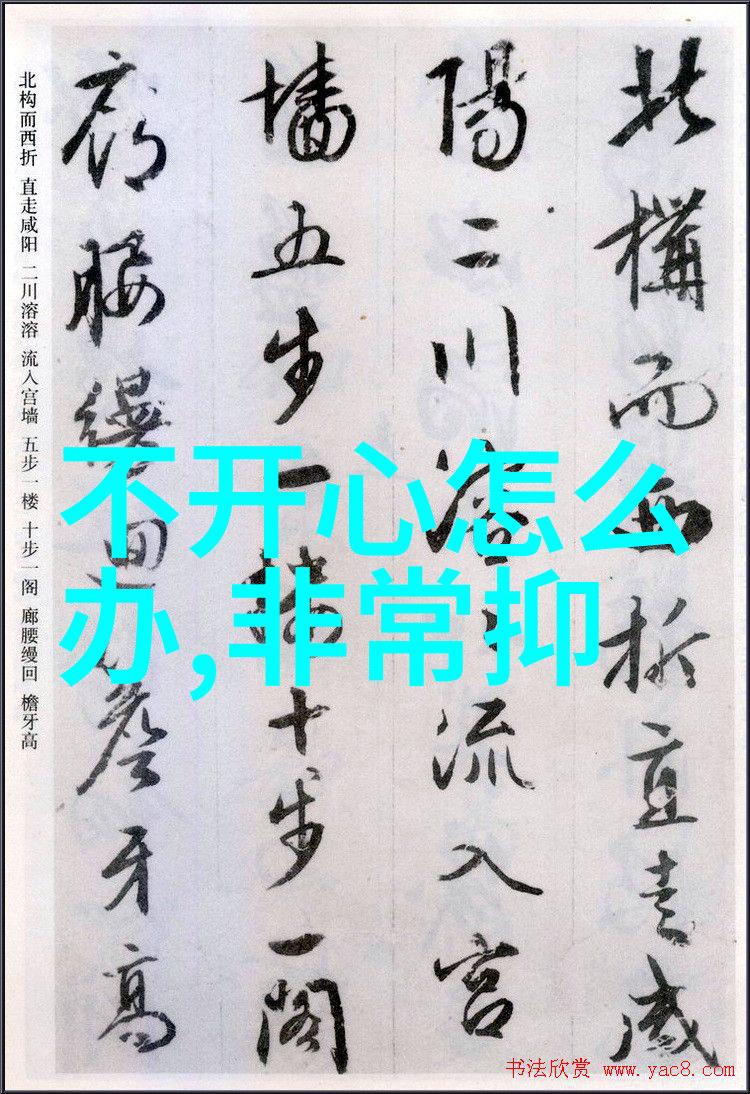 北構而西折直走咸
陽二川溶々流入宮
墙五步一樓十步一閣
廊腰縵迴簷牙高
北构而西折 直走咸阳 二川溶溶 流入宫墙 五步一楼 十步一阁 廊腰缦回 檐牙高
不开心怎么
办,非常抑
书法欣赏 www.yac8.com